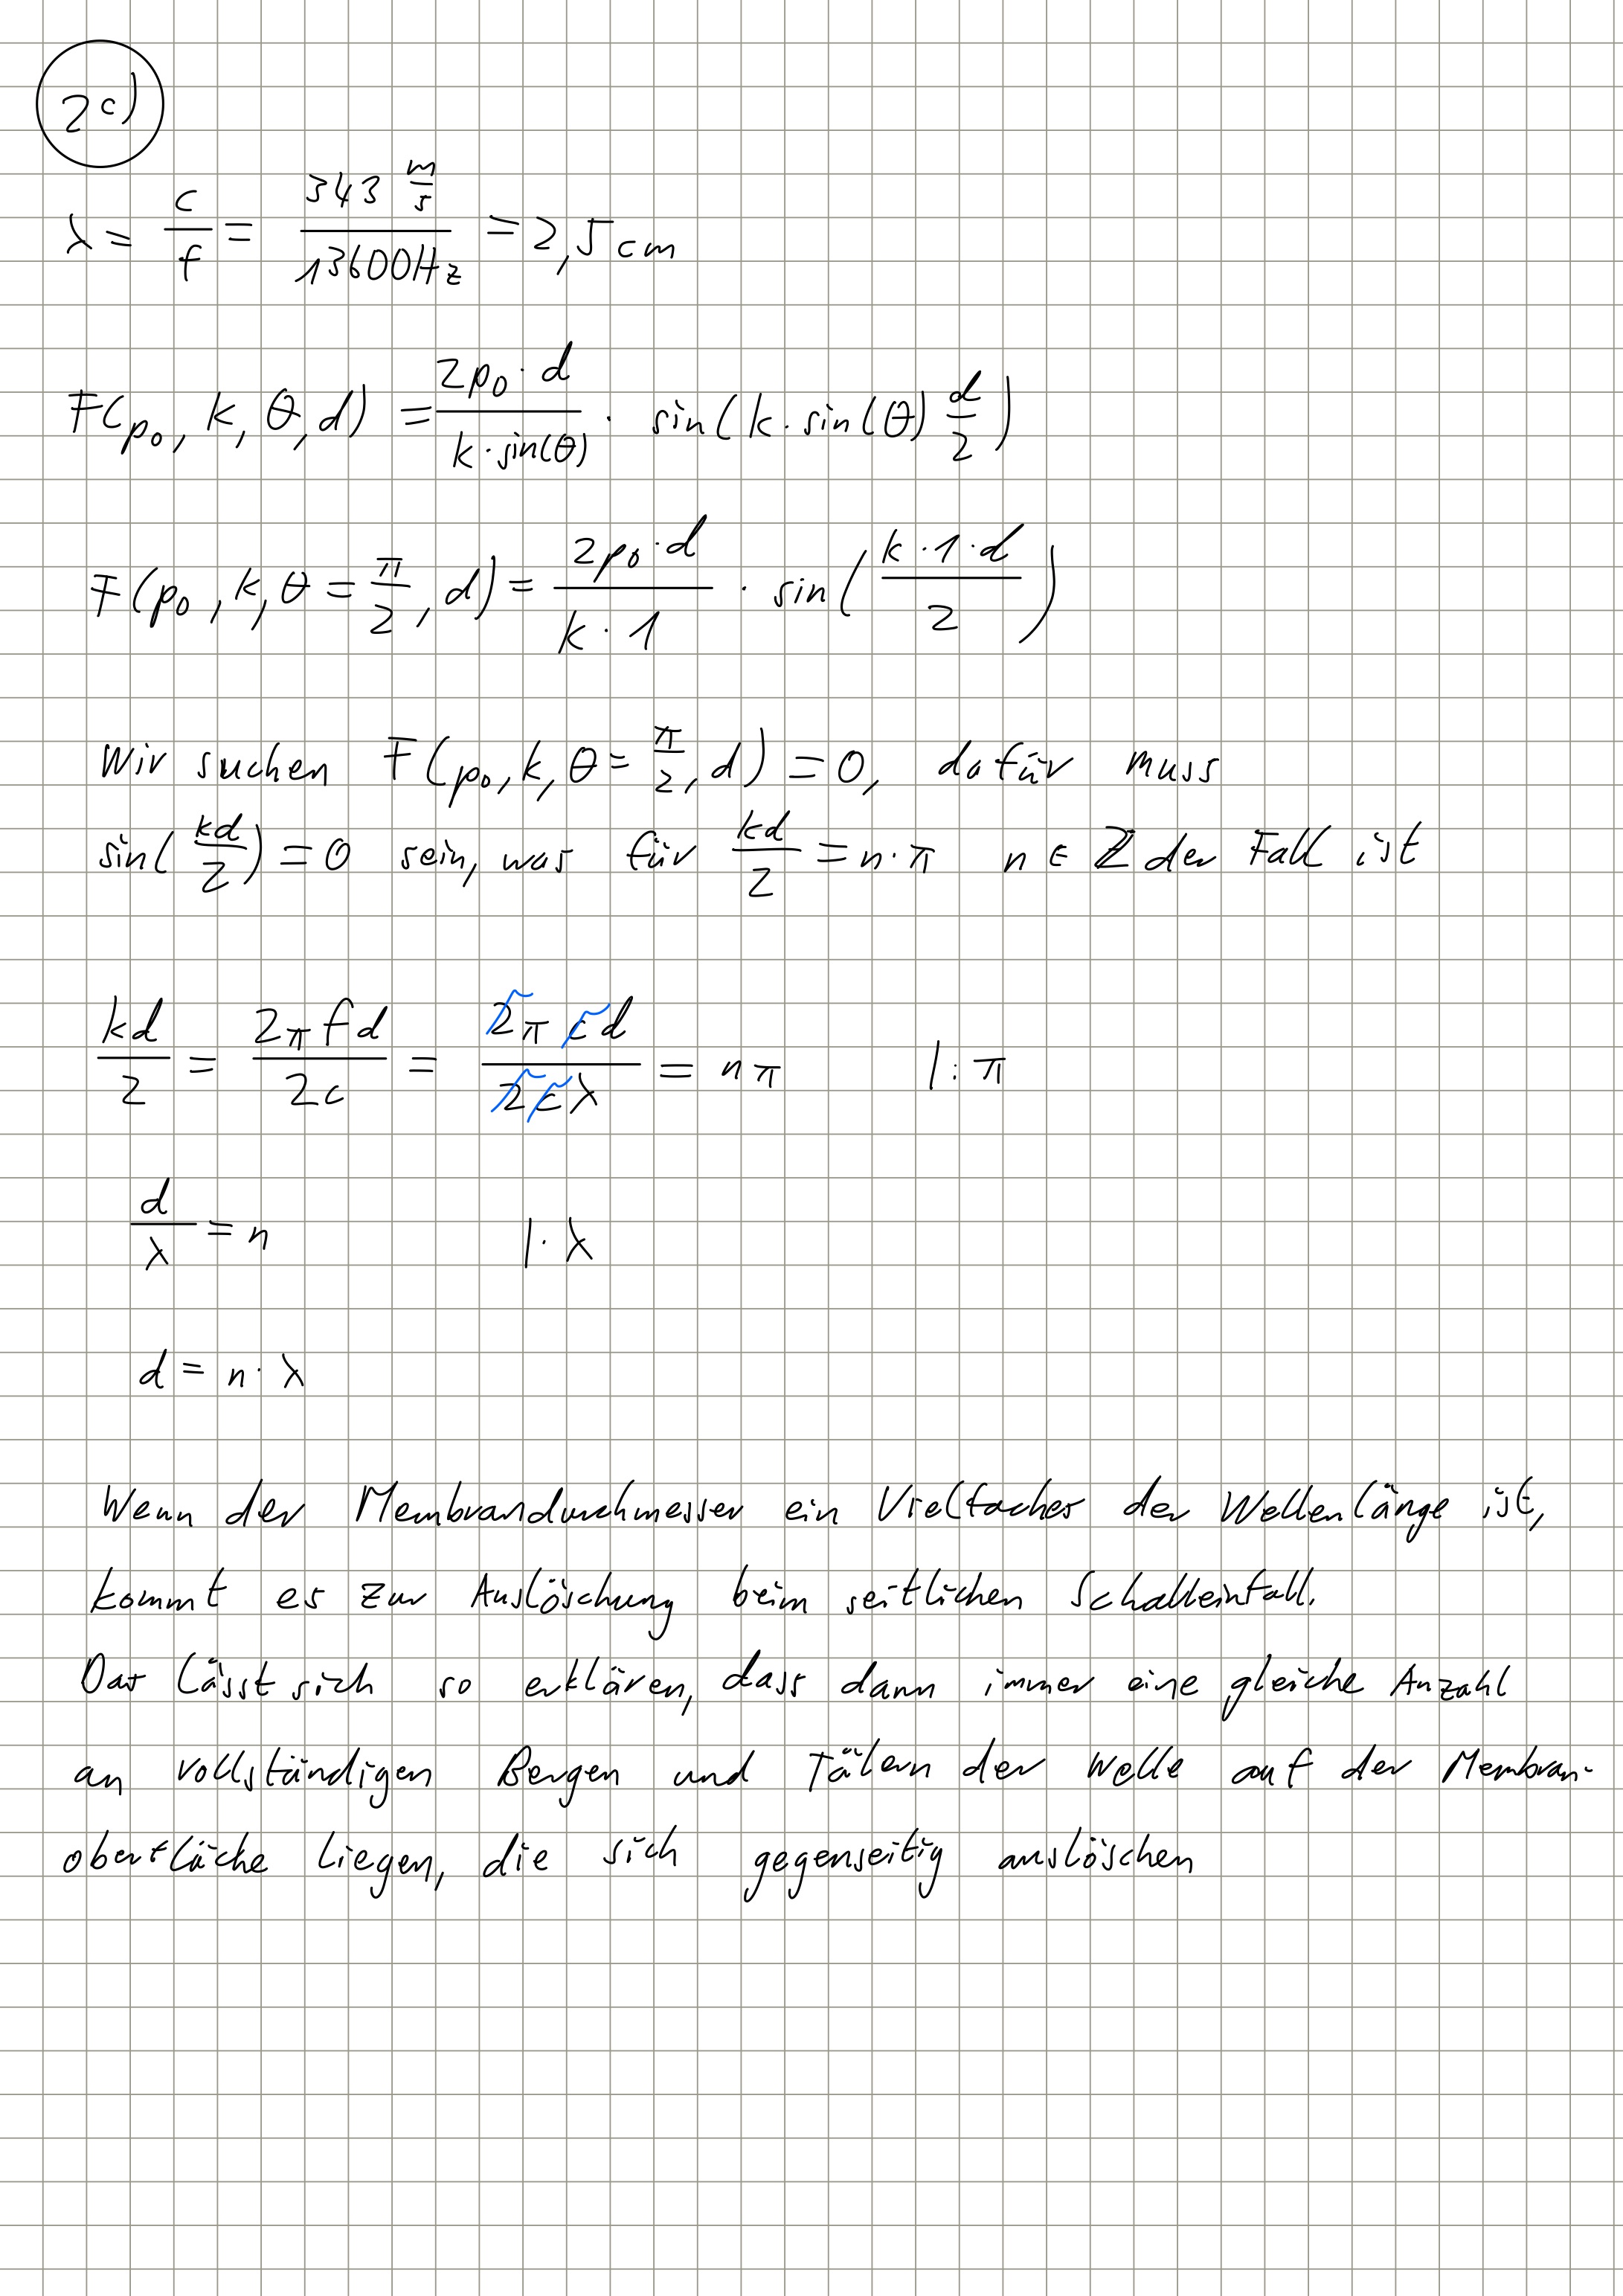 2c)
λ = c/f = 343 m/s / 13600Hz = 2,5 cm
F(p₀, k, θ, d) = 2p₀·d / k·sin(θ) · sin(k·sin(θ) d/2)
F(p₀, k, θ = π/2, d) = 2p₀·d / k·1 · sin(k·1·d / 2)
Wir suchen F(p₀, k, θ = π/2, d) = 0, dafür muss
sin(kd/2) = 0 sein, was für kd/2 = n·π n ∈ ℤ der Fall ist
kd/2 = 2πfd/2c = 2πcd/2cλ = nπ |:π
d/λ = n |·λ
d = n·λ
Wenn der Membrandurchmesser ein Vielfaches der Wellenlänge ist,
kommt es zur Auslöschung beim seitlichen Schalleinfall.
Das lässt sich so erklären, dass dann immer eine gleiche Anzahl
an vollständigen Bergen und Tälern der Welle auf der Membran-
oberfläche liegen, die sich gegenseitig auslöschen